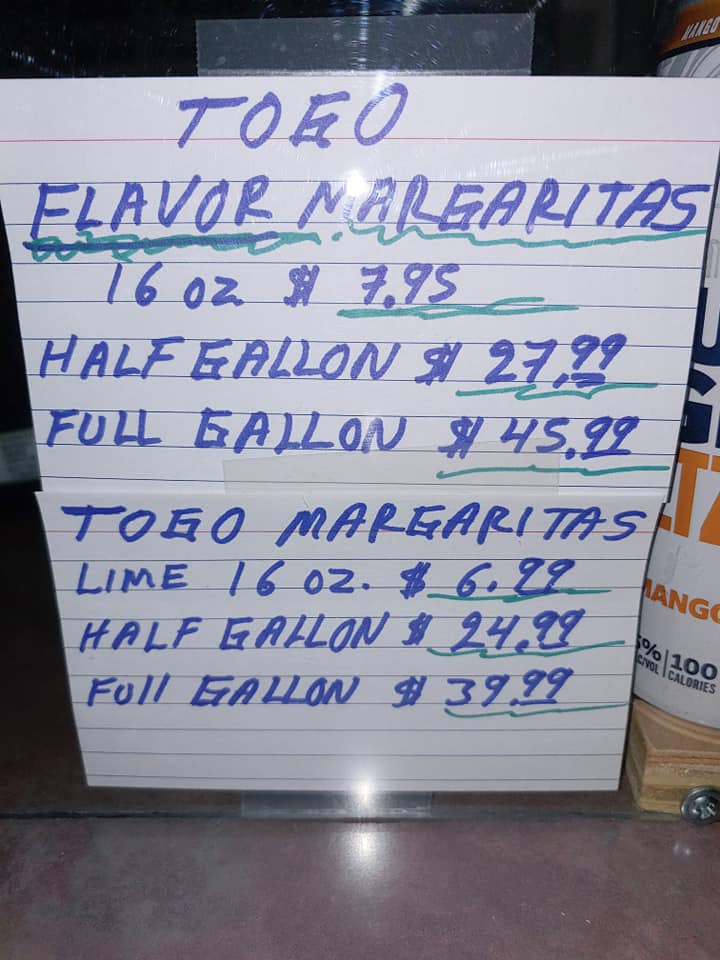 TOGO
FLAVOR MARGARITAS
16 oz $ 7.95
HALF GALLON $ 27.99
FULL GALLON $ 45.99
TOGO MARGARITAS
LIME 16 oz. $ 6.99
HALF GALLON $ 24.99
Full GALLON $ 39.99
MANGO
5%
100
CALORIES